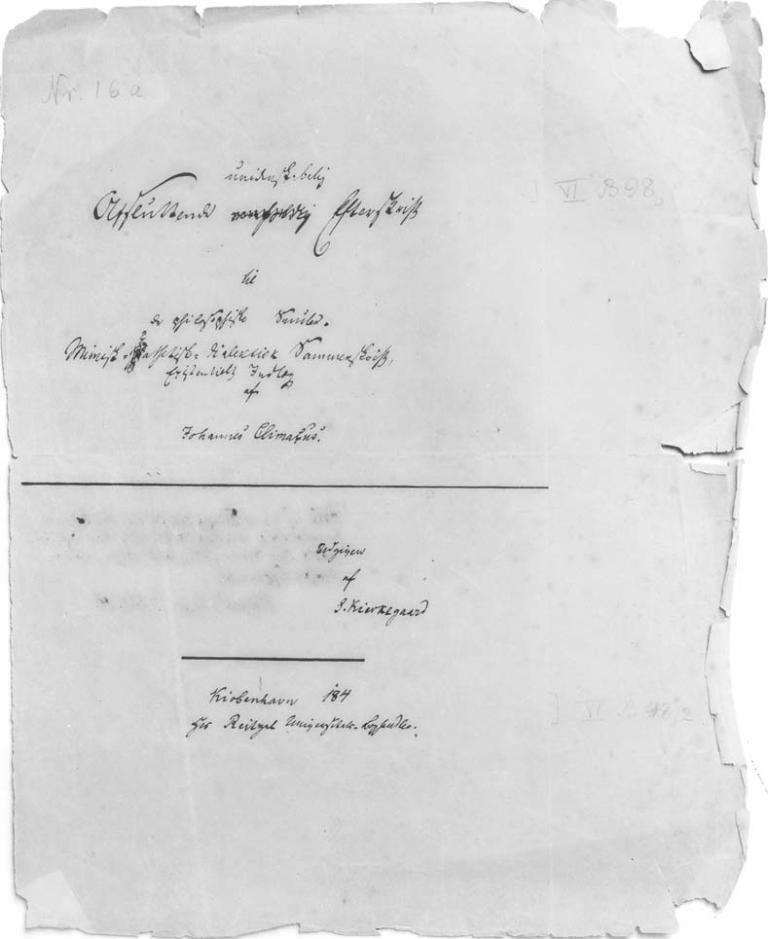 Nr. 16a
uvidenskabelig
VI B 98,
Afsluttende Efterskrift
til
de philosophiske Smuler.
Mimisk-pathetisk-dialektisk Sammenskrift,
Existentielt Indlæg
af
Johannes Climacus.
Udgiven
af
S. Kierkegaard
Kiøbenhavn 184
VI B 98,2
Hos Reitzel